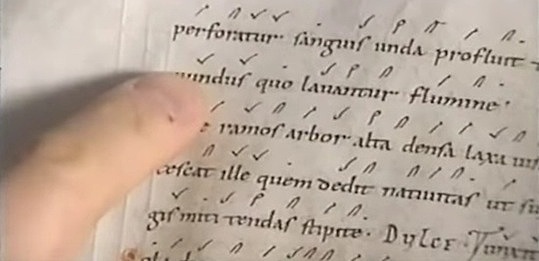 perforatur sanguis unda profluit
mundus quo lauantur flumine
ramos arbor alta densa laxa uis
cescat ille quem dedit natiuitas ut su
gis miti tendas stipite. Dulce